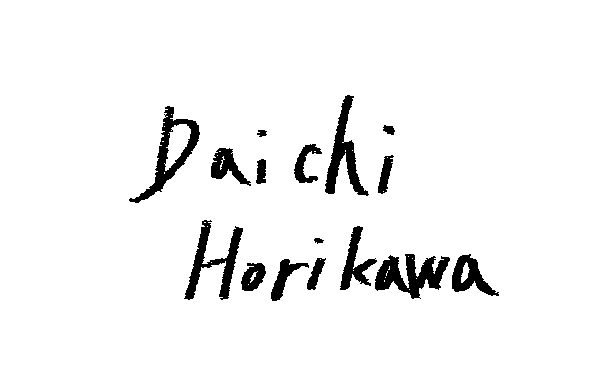 Daichi
Horikawa